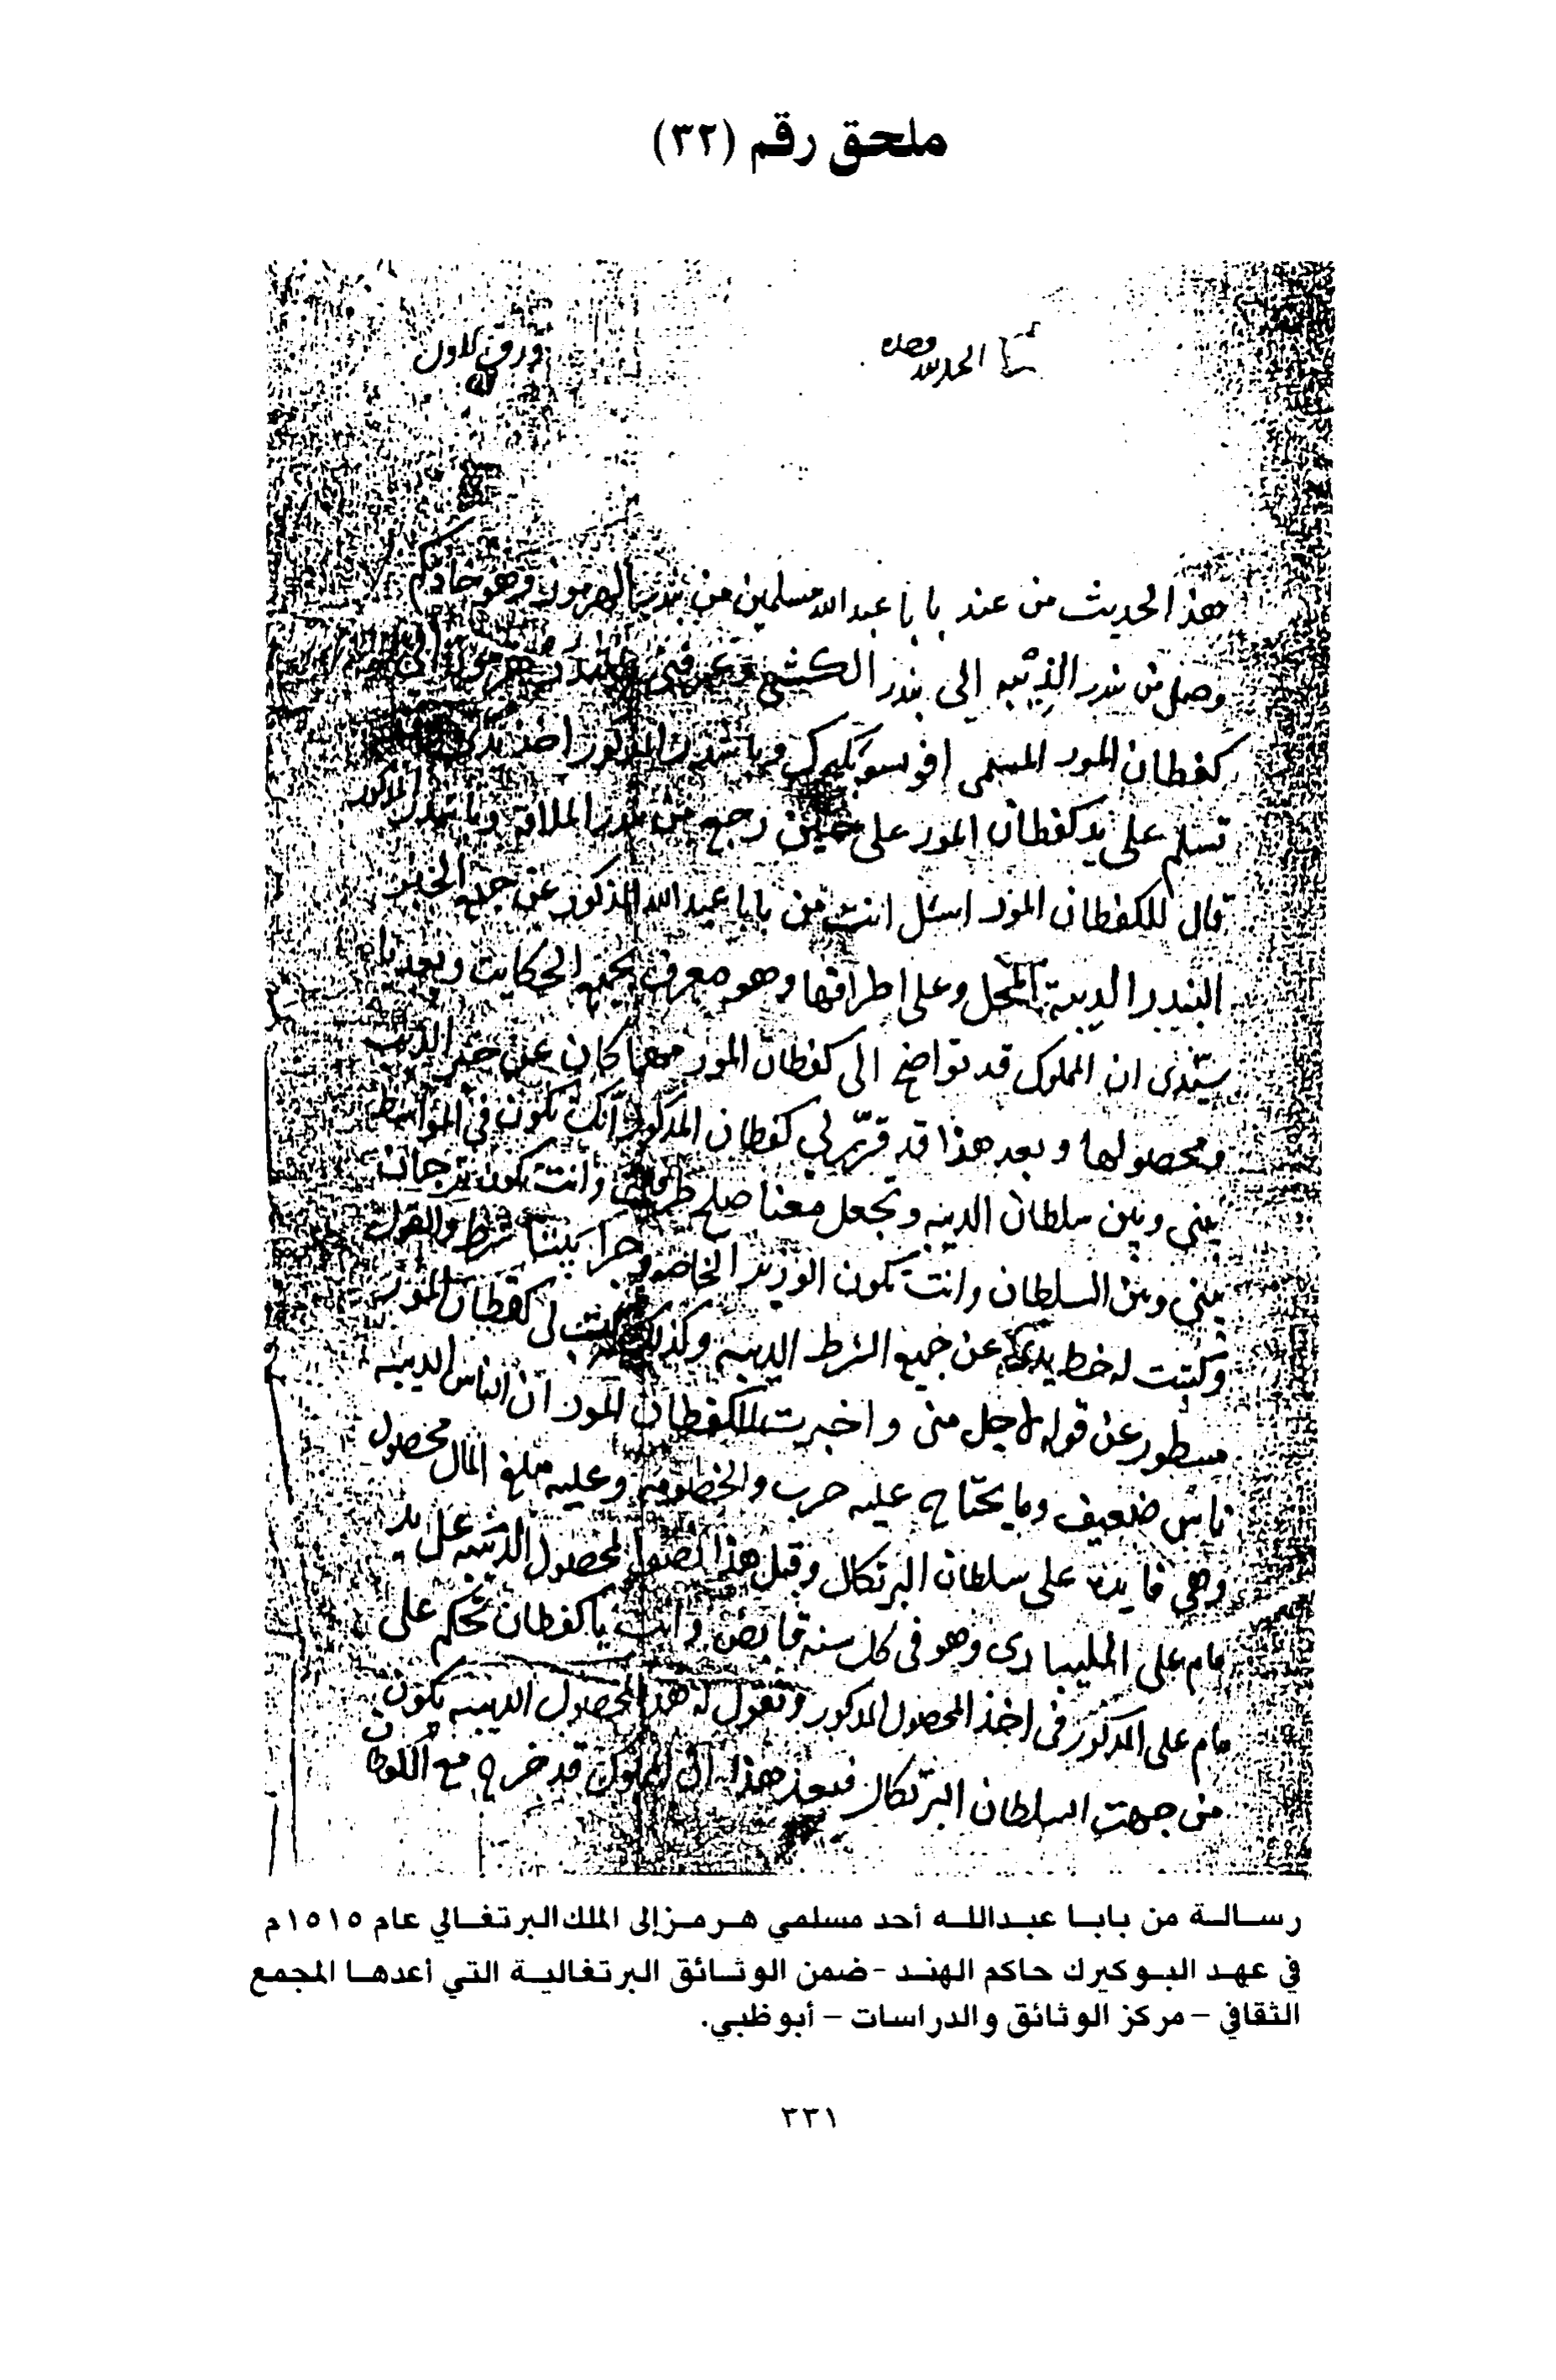 ملحق رقم (٣٢)
ورق الاول
الحمد لله وحده
هذا الحديث من عند بابا عبد الله مسلمين من بندر الهرموز وهو خادمكم
وصل من بندر الذيبه الى بندر الكشي وعرفني
كفطان المور المسمى افونسو بكيرك وبا بندر المذكور اخذ يدي
تسلم على يد كفطان المور على حين رجع من بندر الملاقه وبا بندر المذكور
قال للكفطان المور اسئل انت من بابا عبد الله المذكور عن جميع الخبر
البندر الديبة المحل وعلى اطرافها وهو معرف بجميع الحكايت وبعد ناه
ان المملوك قد تواضع الى كفطان المور مهما كان عن خبر الذيب
ومحصولها وبعد هذا قد قرر لي كفطان المذكور انك تكون في المواسطه
بيني وبين سلطان الديبه وتجعل معنا صلح وانت تكون ترجمان
بيني وبين السلطان وانت تكون الوزير الخاصه وجرا بيننا شرط والقول
وكتبت له خط يدي عن جميع الشرط الديبه وكذلك كتب لي كفطان المور
مسطور عن قوله لاجل مني واخبرت للكفطان المور ان الناس الديبيه
ناس ضعيف وما يحتاج عليه حرب والخصومه وعليه مبلغ المال محصول
وهي فايده على سلطان البرتكال وقبل هذا المحصول الذيبيه على يد
مام على المليباري وهو في كل سنه قابض وانت يا كفطان تحكم على
مام على المذكور في اخذ المحصول المذكور وتقول له هذا المحصول الديبيه تكون
من جهت السلطان البرتكال فبعد هذا ان المملوك قد خرج مع
رسالة من بابا عبدالله أحد مسلمي هرمز إلى الملك البرتغالي عام ١٥١٥م
في عهد البوكيرك حاكم الهند - ضمن الوثائق البرتغالية التي أعدها المجمع
الثقافي - مركز الوثائق والدراسات - أبوظبي.
٣٣١